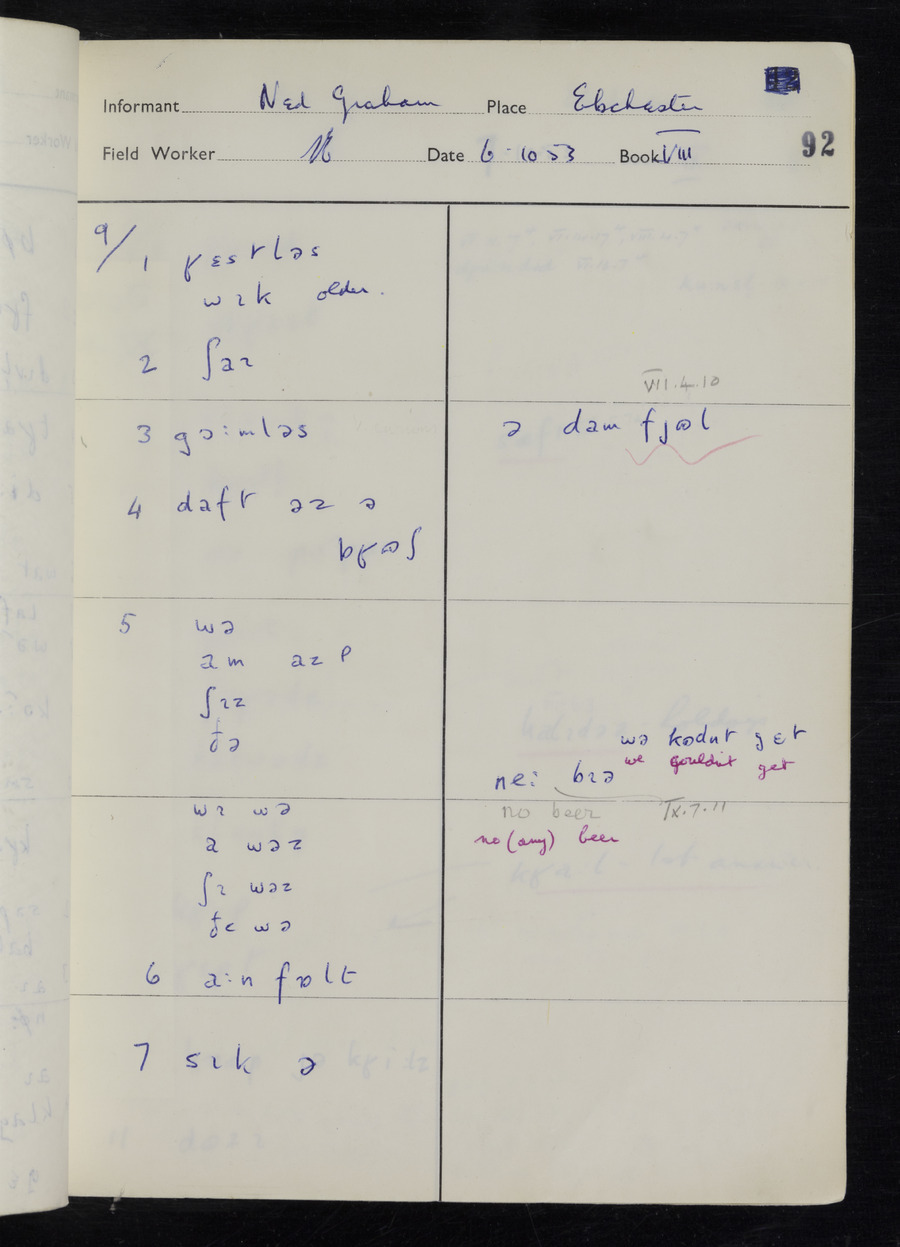 Informant Ned Graham Place Ebchester
Field Worker Date 6·10 53 Book VIII 92
9/
1 ɼɛstləs
wɪk older.
2 ʃaɪ
VII.4.10
3 gɔːmləs
ə dam fjɵl
4 daft əz ə
bɼɵʃ
5 wə
am az ?
ʃɪz
ðə
wə kədnt gɛt
we couldn't get
neː bɪə
no beer IX.7.11
no (any) beer
wɪ wə
a wəz
ʃɪ wəz
ðe wə
6 aːn fɔlt
7 sɪk ə